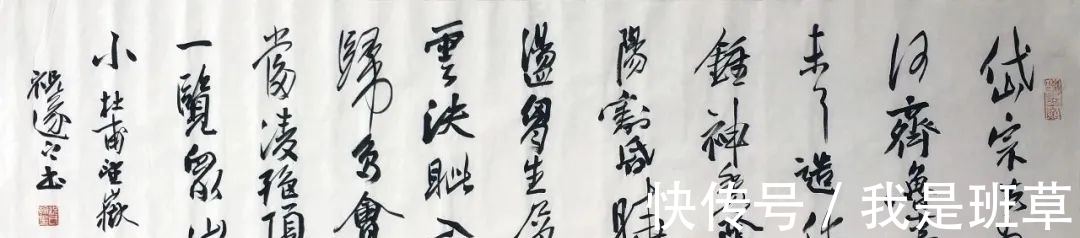 岱宗夫如
何齊魯青
未了造化
鍾神秀陰
陽割昏曉
盪胸生層
雲決眦入
歸鳥會
當凌絕頂
一覽眾山
小 杜甫望嶽
書
快传号 / 我是班草